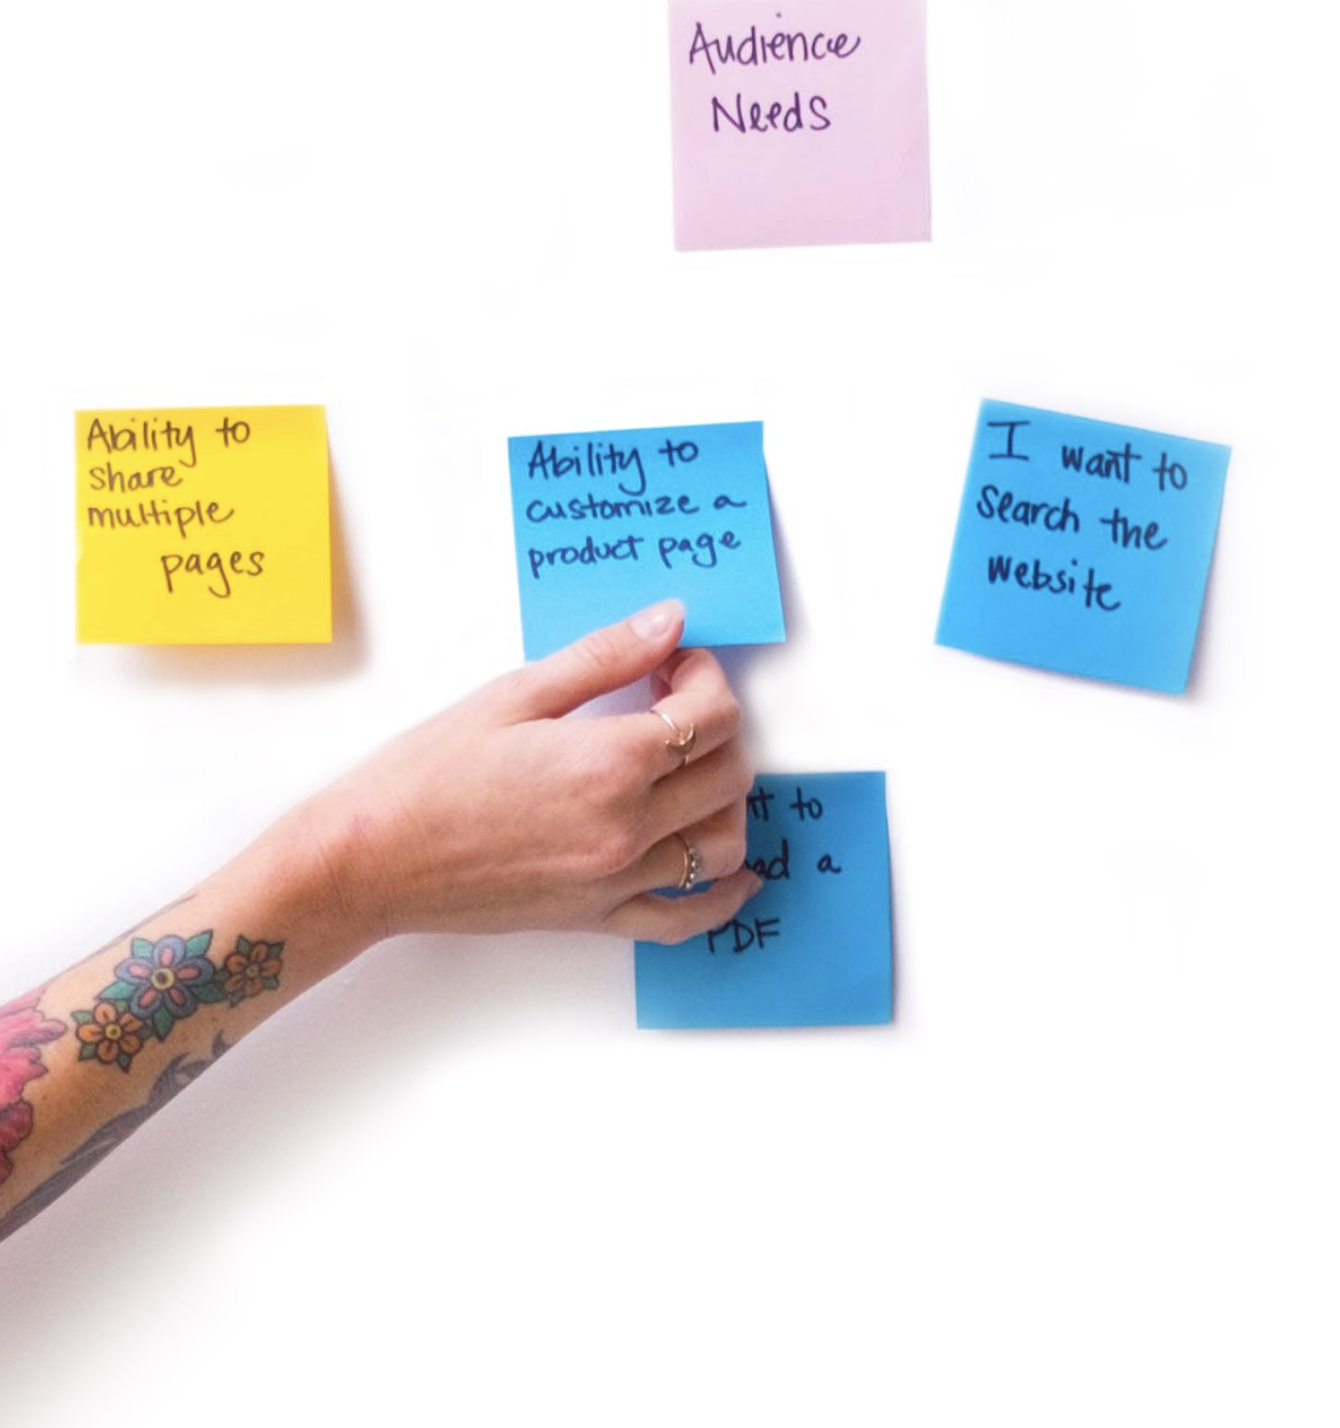 Audience
Needs
Ability to
share
multiple
pages
Ability to
customize a
product page
I want to
search the
website
to
a
PDF